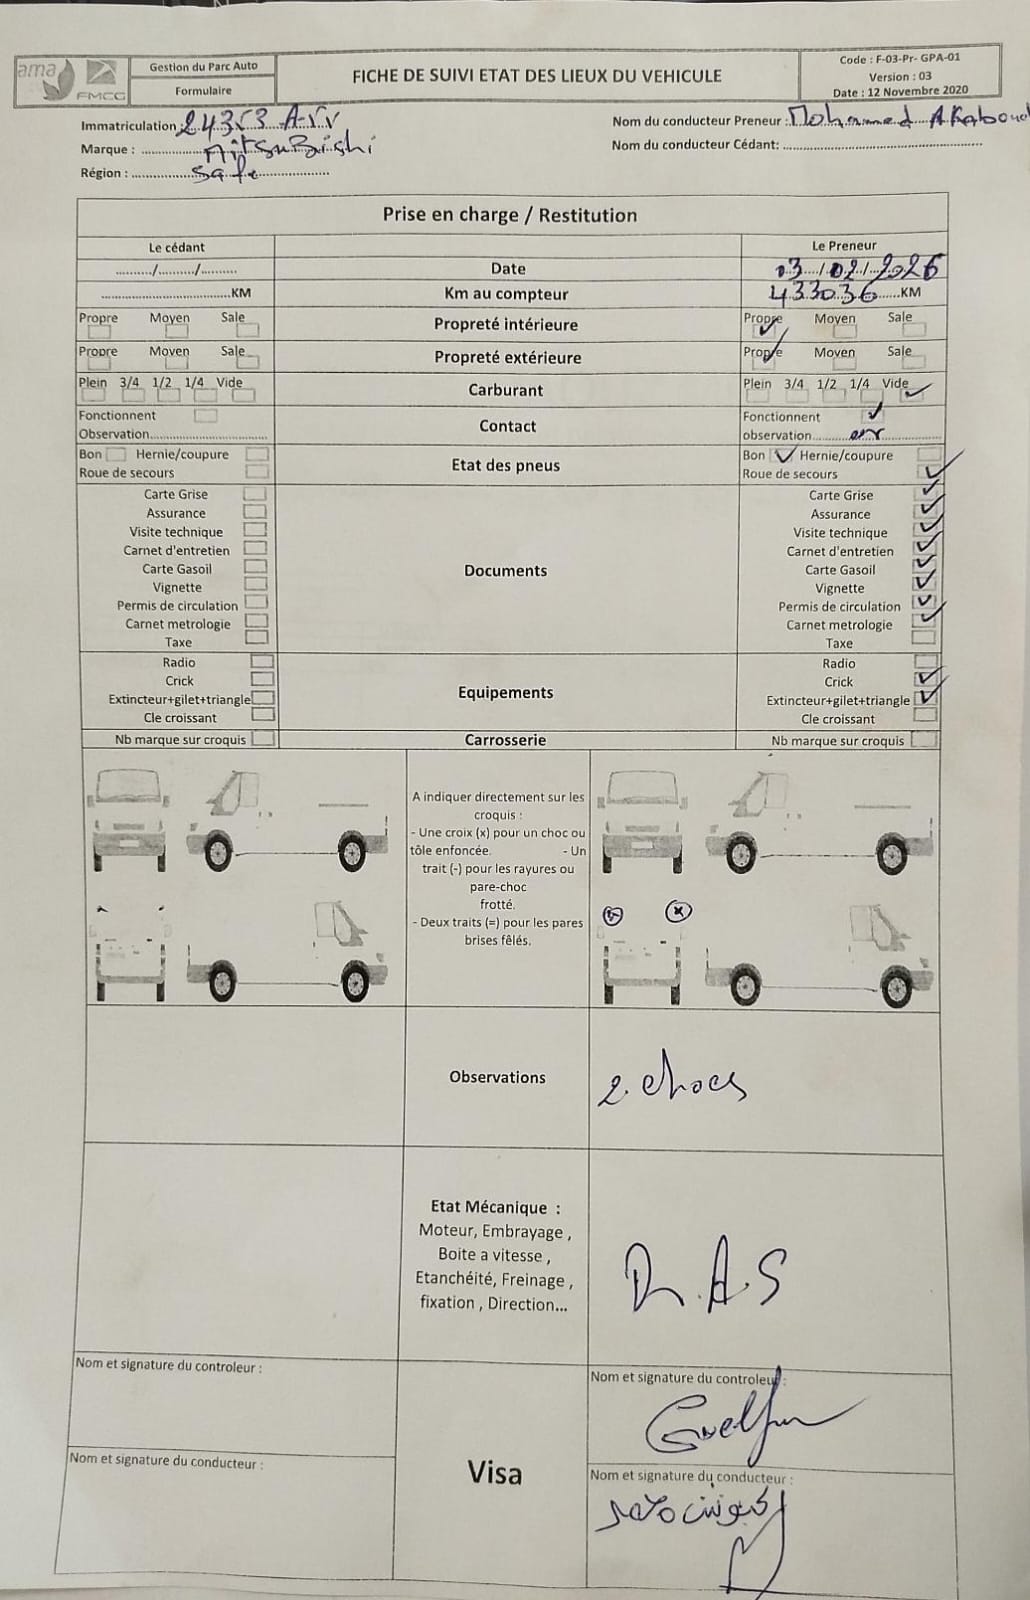 ama
FMCG
Gestion du Parc Auto
Formulaire
FICHE DE SUIVI ETAT DES LIEUX DU VEHICULE
Code : F-03-Pr- GPA-01
Version : 03
Date : 12 Novembre 2020
Immatriculation :
Marque : MitsuBishi
Région : Safi
Nom du conducteur Preneur : Mohammed
Nom du conducteur Cédant:
Prise en charge / Restitution
Le cédant Le Preneur
....../....../...... Date 03/02/2026
KM Km au compteur 433036 KM
Propre Moyen Sale Propreté intérieure Propre Moyen Sale
Propre Moyen Sale Propreté extérieure Propre Moyen Sale
Plein 3/4 1/2 1/4 Vide Carburant Plein 3/4 1/2 1/4 Vide
Fonctionnent Contact Fonctionnent
Observation observation
Bon Hernie/coupure Etat des pneus Bon Hernie/coupure
Roue de secours Roue de secours
Carte Grise Carte Grise
Assurance Assurance
Visite technique Visite technique
Carnet d'entretien Carnet d'entretien
Carte Gasoil Documents Carte Gasoil
Vignette Vignette
Permis de circulation Permis de circulation
Carnet metrologie Carnet metrologie
Taxe Taxe
Radio Radio
Crick Crick
Extincteur+gilet+triangle Equipements Extincteur+gilet+triangle
Cle croissant Cle croissant
Nb marque sur croquis Carrosserie Nb marque sur croquis
A indiquer directement sur les
croquis :
- Une croix (x) pour un choc ou
tôle enfoncée. - Un
trait (-) pour les rayures ou
pare-choc
frotté.
- Deux traits (=) pour les pares
brises fêlés.
Observations 2 chocs
Etat Mécanique :
Moteur, Embrayage ,
Boite a vitesse ,
Etanchéité, Freinage ,
fixation , Direction...
R.A.S
Nom et signature du controleur : Nom et signature du controleur :
Visa
Nom et signature du conducteur : Nom et signature du conducteur :